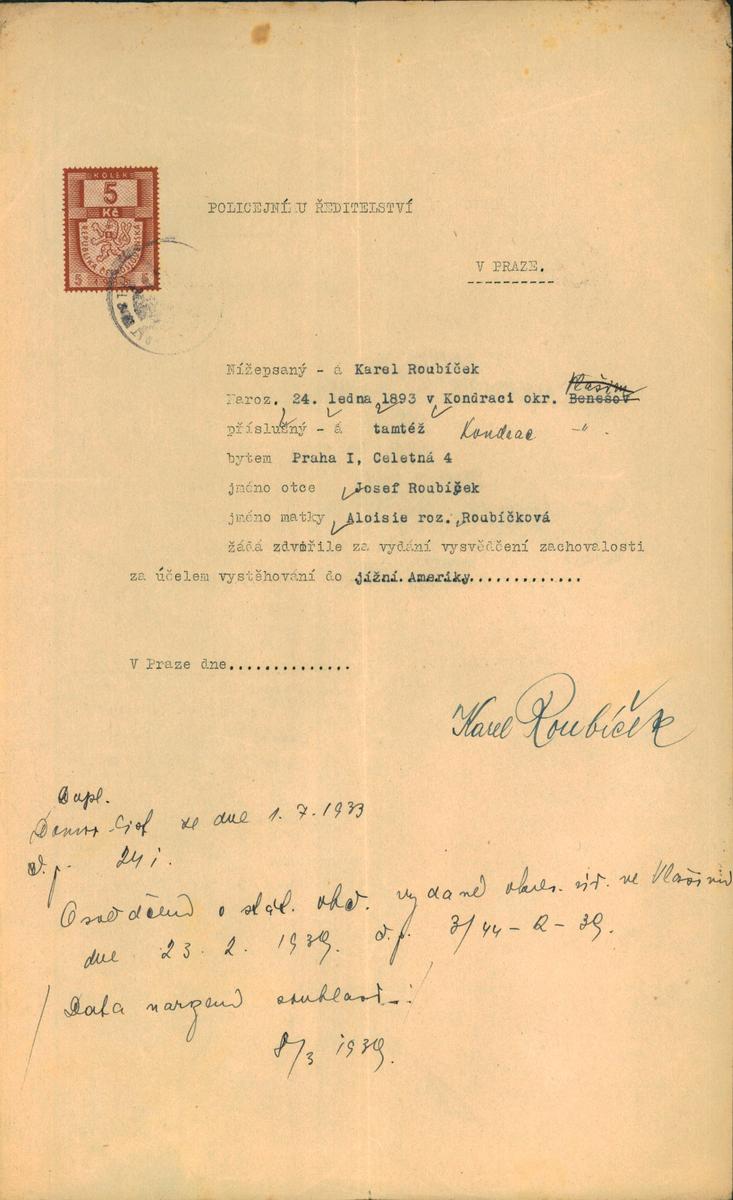 KOLEK
5
Kč
REPUBLIKA ČESKOSLOVENSKÁ
5 5
POLICEJNÍMU ŘEDITELSTVÍ
V PRAZE.
Nížepsaný - á Karel Roubíček
Vlašim
Naroz. 24. ledna 1893 v Kondraci okr. Benešov
příslušný - á tamtéž Kondrac -"-
bytem Praha I, Celetná 4
jméno otce Josef Roubíček
jméno matky Aloisie roz. Roubíčková
žádá zdvořile za vydání vysvědčení zachovalosti
za účelem vystěhování do jižní Ameriky.............
V Praze dne..............
Karel Roubíček
Dupl.
Domov. list ze dne 1.7.1933
č.p. 241.
Osvědčení o stát. obč. vydané okres. úř. ve Vlašimi
dne 23. 2. 1939. č.p. 3/44-2-39.
Data narození souhlasí
8/3 1939.